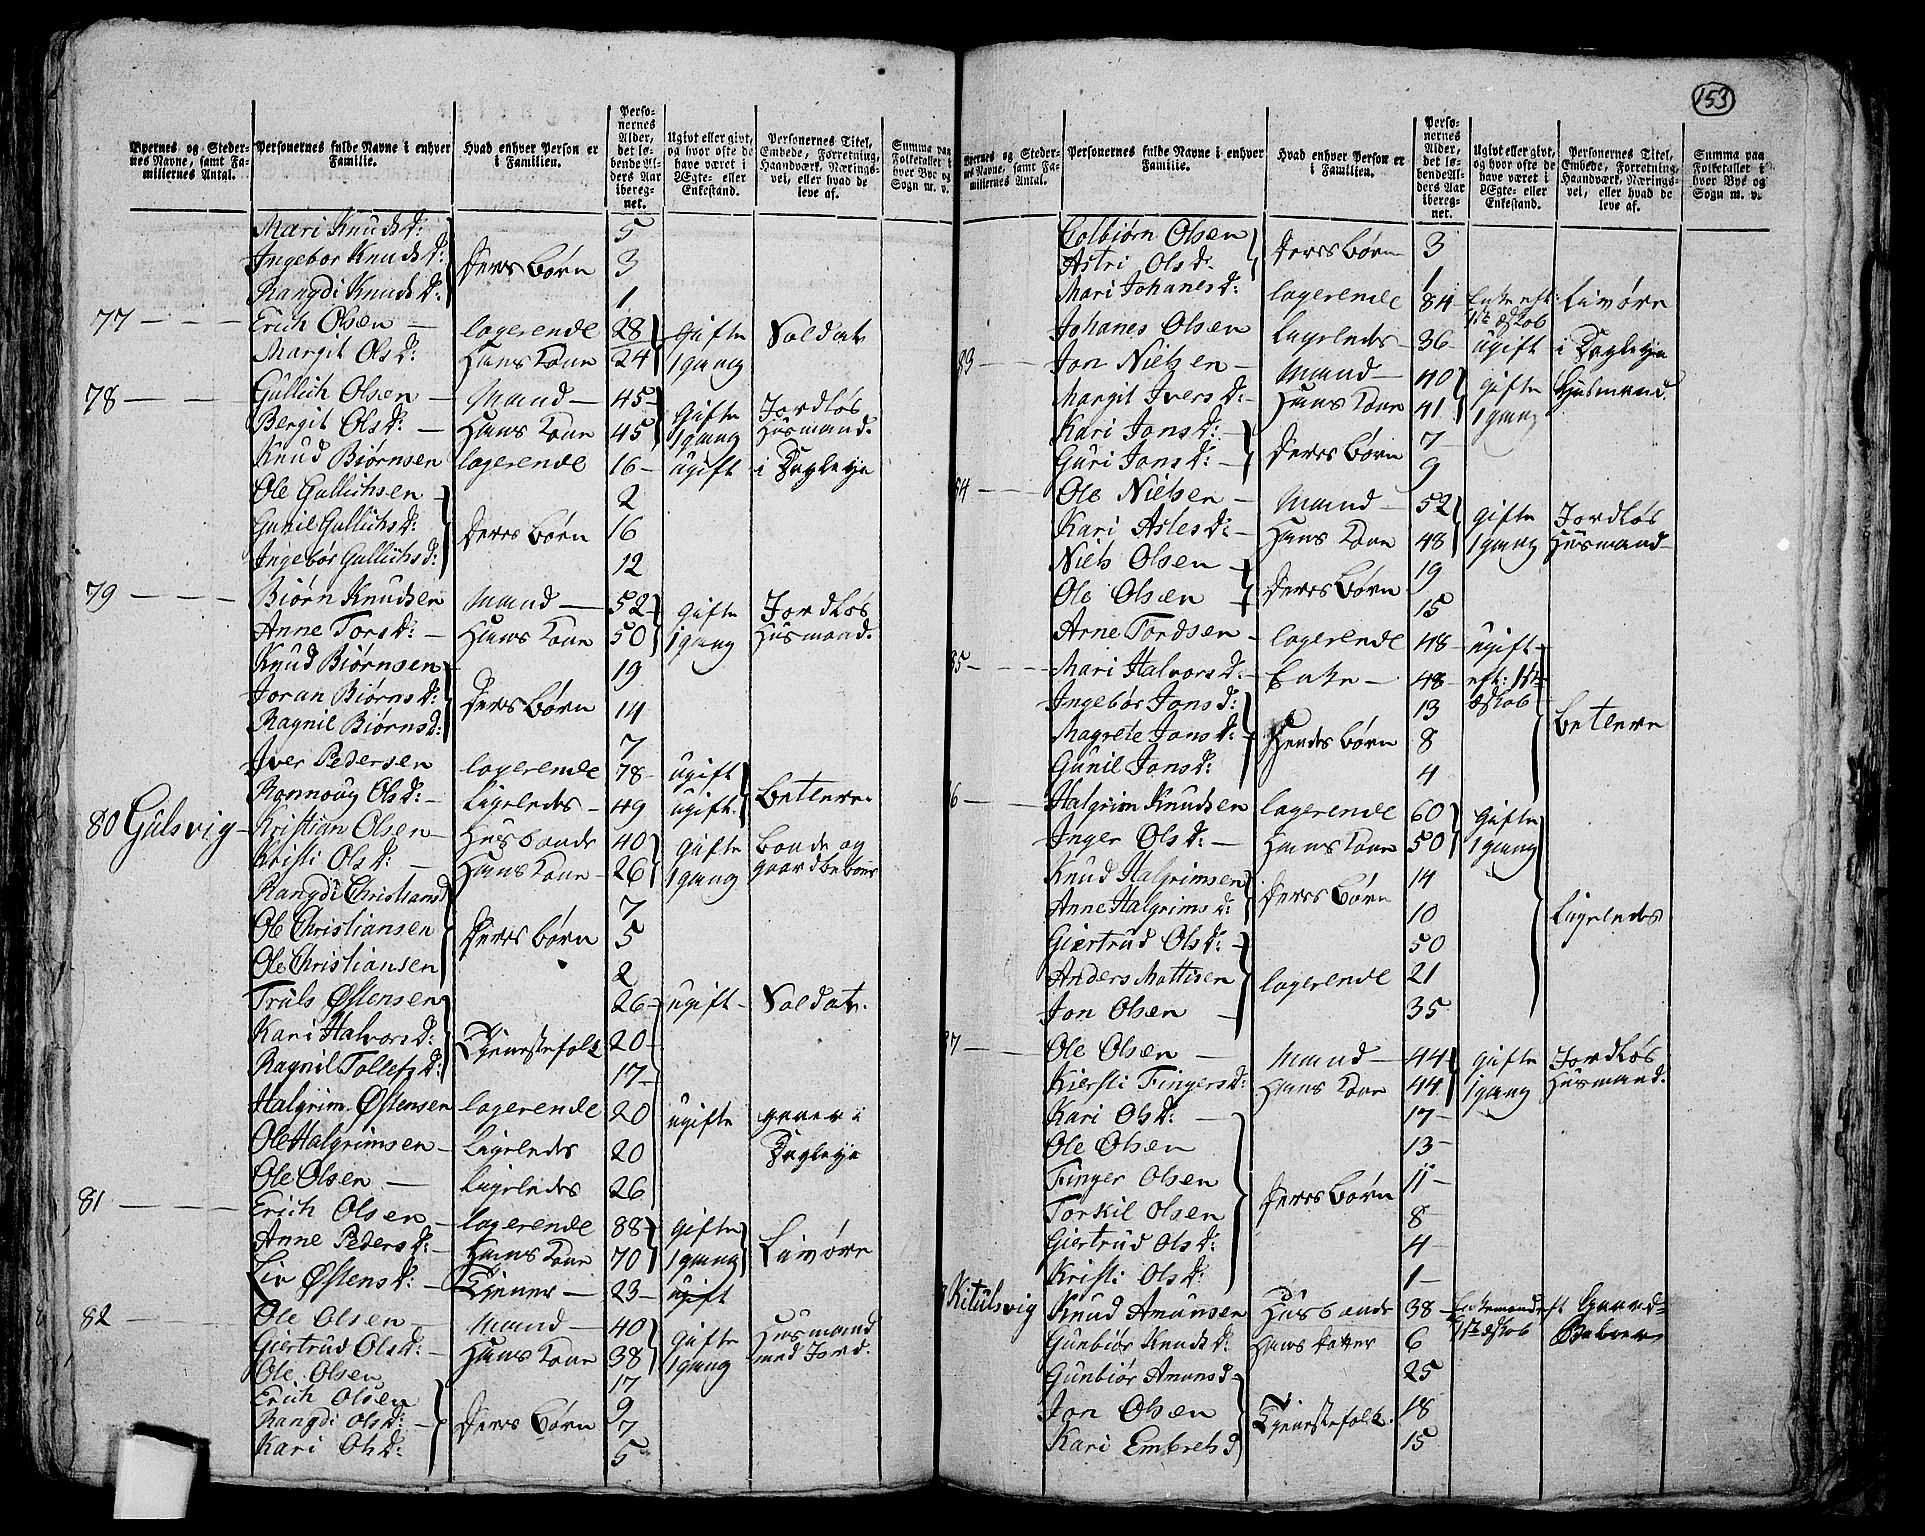 153
Byernes og Steder-
nes Navne, samt Fa-
miliernes Antal.
Personernes fulde Navne i enhver
Familie.
Hvad enhver Person er
i Familien.
Perso-
nernes
Alder,
det lø-
bende Al-
ders Aar
iberegn-
net.
Ugivt eller givt,
og hvor ofte de
have været i
Ægte- eller
Enkestand.
Personernes Titel,
Embede, Forretning,
Haandværk, Nærings-
vei, eller hvad de
leve af.
Summa paa
Folketallet i
hver Bye og
Sogn m. v.
Mari Knudsd: 5
Ingebor Knudsd: Deres Børn 3
Rangdi Knudsd: 1
77 Erich Olsen logerende 28 gifte Soldat
Margit Olsd: Hans Kone 24 1 gang
78 Gullich Olsen Mand 45 gifte Jordløs
Bergit Olsd: Hans Kone 45 1 gang Husmand.
Knud Biørnsen logerende 16 ugift i Dagleye
Ole Gullichsen 2
Gunil Gullichsd: Deres Børn 16
Ingebør Gullichsd: 12
79 Biørn Knudsen Mand 52 gifte Jordløs
Anne Torsd: Hans Kone 50 1 gang Husmand.
Knud Biørnsen 19
Joran Biørnsd: Deres Børn 14
Ragnil Biørnsd: 7
Iver Pedersen logerende 78 ugift
Ronnoug Olsd: Ligeledes 49 ugift. Betlere
80 Gulsvig Kristian Olsen Husbonde 40 gifte Bonde og
Kristi Olsd: Hans Kone 26 1 gang gaardbeboer
Rangdi Christiansd 7
Ole Christiansen Deres Børn 5
Ole Christiansen 2
Truls Østensen 26 ugift Soldat.
Kari Halvorsd: Tienestefolk 20
Ragnil Tollefsd: 17
Halgrim Østensen logerende 20 ugifte gaaer i
Ole Halgrimsen Ligeledes 20 Dagleye
Ole Olsen Ligeledes 26
81 Erich Olsen logerende 88 gifte
Anne Pedersd: Hans Kone 70 1 gang Livøre
Liv Østensd: Tiener 23 ugift
82 Ole Olsen Mand 40 gifte Husmand
Giertrud Olsd: Hans Kone 38 1 gang med Jord.
Ole Olsen 17
Erich Olsen 9
Rangdi Olsd: Deres Børn 7
Kari Olsd: 5
Byernes og Steder-
nes Navne, samt Fa-
miliernes Antal.
Personernes fulde Navne i enhver
Familie.
Hvad enhver Person er
i Familien.
Perso-
nernes
Alder,
det lø-
bende Al-
ders Aar
iberegn-
net.
Ugivt eller givt,
og hvor ofte de
have været i
Ægte- eller
Enkestand.
Personernes Titel,
Embede, Forretning,
Haandværk, Nærings-
vei, eller hvad de
leve af.
Summa paa
Folketallet i
hver Bye og
Sogn m. v.
Colbiørn Olsen Deres Børn 3
Astri Olsd. 1
Mari Johanesd: logerende 84 Enke eft: Livøre
1ste Ægteskab
Johanes Olsen Ligeledes 36 ugift i Dagleye
83 Jon Nielsen Mand 40 gifte Husmand.
Margit Iversd: Hans Kone 41 1 gang
Kari Jonsd: Deres Børn 7
Guri Jonsd: 9
84 Ole Nielsen Mand 52 gifte Jordløs
Kari Aslesd: Hans Kone 48 1 gang Husmand
Niels Olsen Deres Børn 19
Ole Olsen 15
Arne Tordsen logerende 48 ugift
85 Mari Halvorsd: Enke 48 eft: 1ste
Ingebør Jonsd: 13
Magrete Jonsd: Hendes Børn 8 Betlere
Gunil Jonsd: 4
6 Halgrim Knudsen logerende 60 gifte
Inger Olsd: Hans Kone 50 1 gang
Knud Halgrimsen Deres Børn 14
Anne Halgrimsd: 10 Ligeledes
Giertrud Olsd: 50
Anders Mattisen logerende 21
Jon Olsen 35
87 Ole Olsen Mand 44 gifte Jordløs
Kiersti Fingersd: Hans Kone 44 1 gang Husmand.
Kari Olsd: 17
Ole Olsen 13
Finger Olsen 11
Torkil Olsen Deres Børn 8
Giertrud Olsd: 4
Kristi Olsd: 1
Kitulsvig Knud Amunsen Husbonde 38 Enkemand eft Gaard-
Gunbiør Knudsd: Hans Datter 6 Beboer
Gunbiør Amunsd 25
Jon Olsen Tienestefolk. 18
Kari Embretsd 15